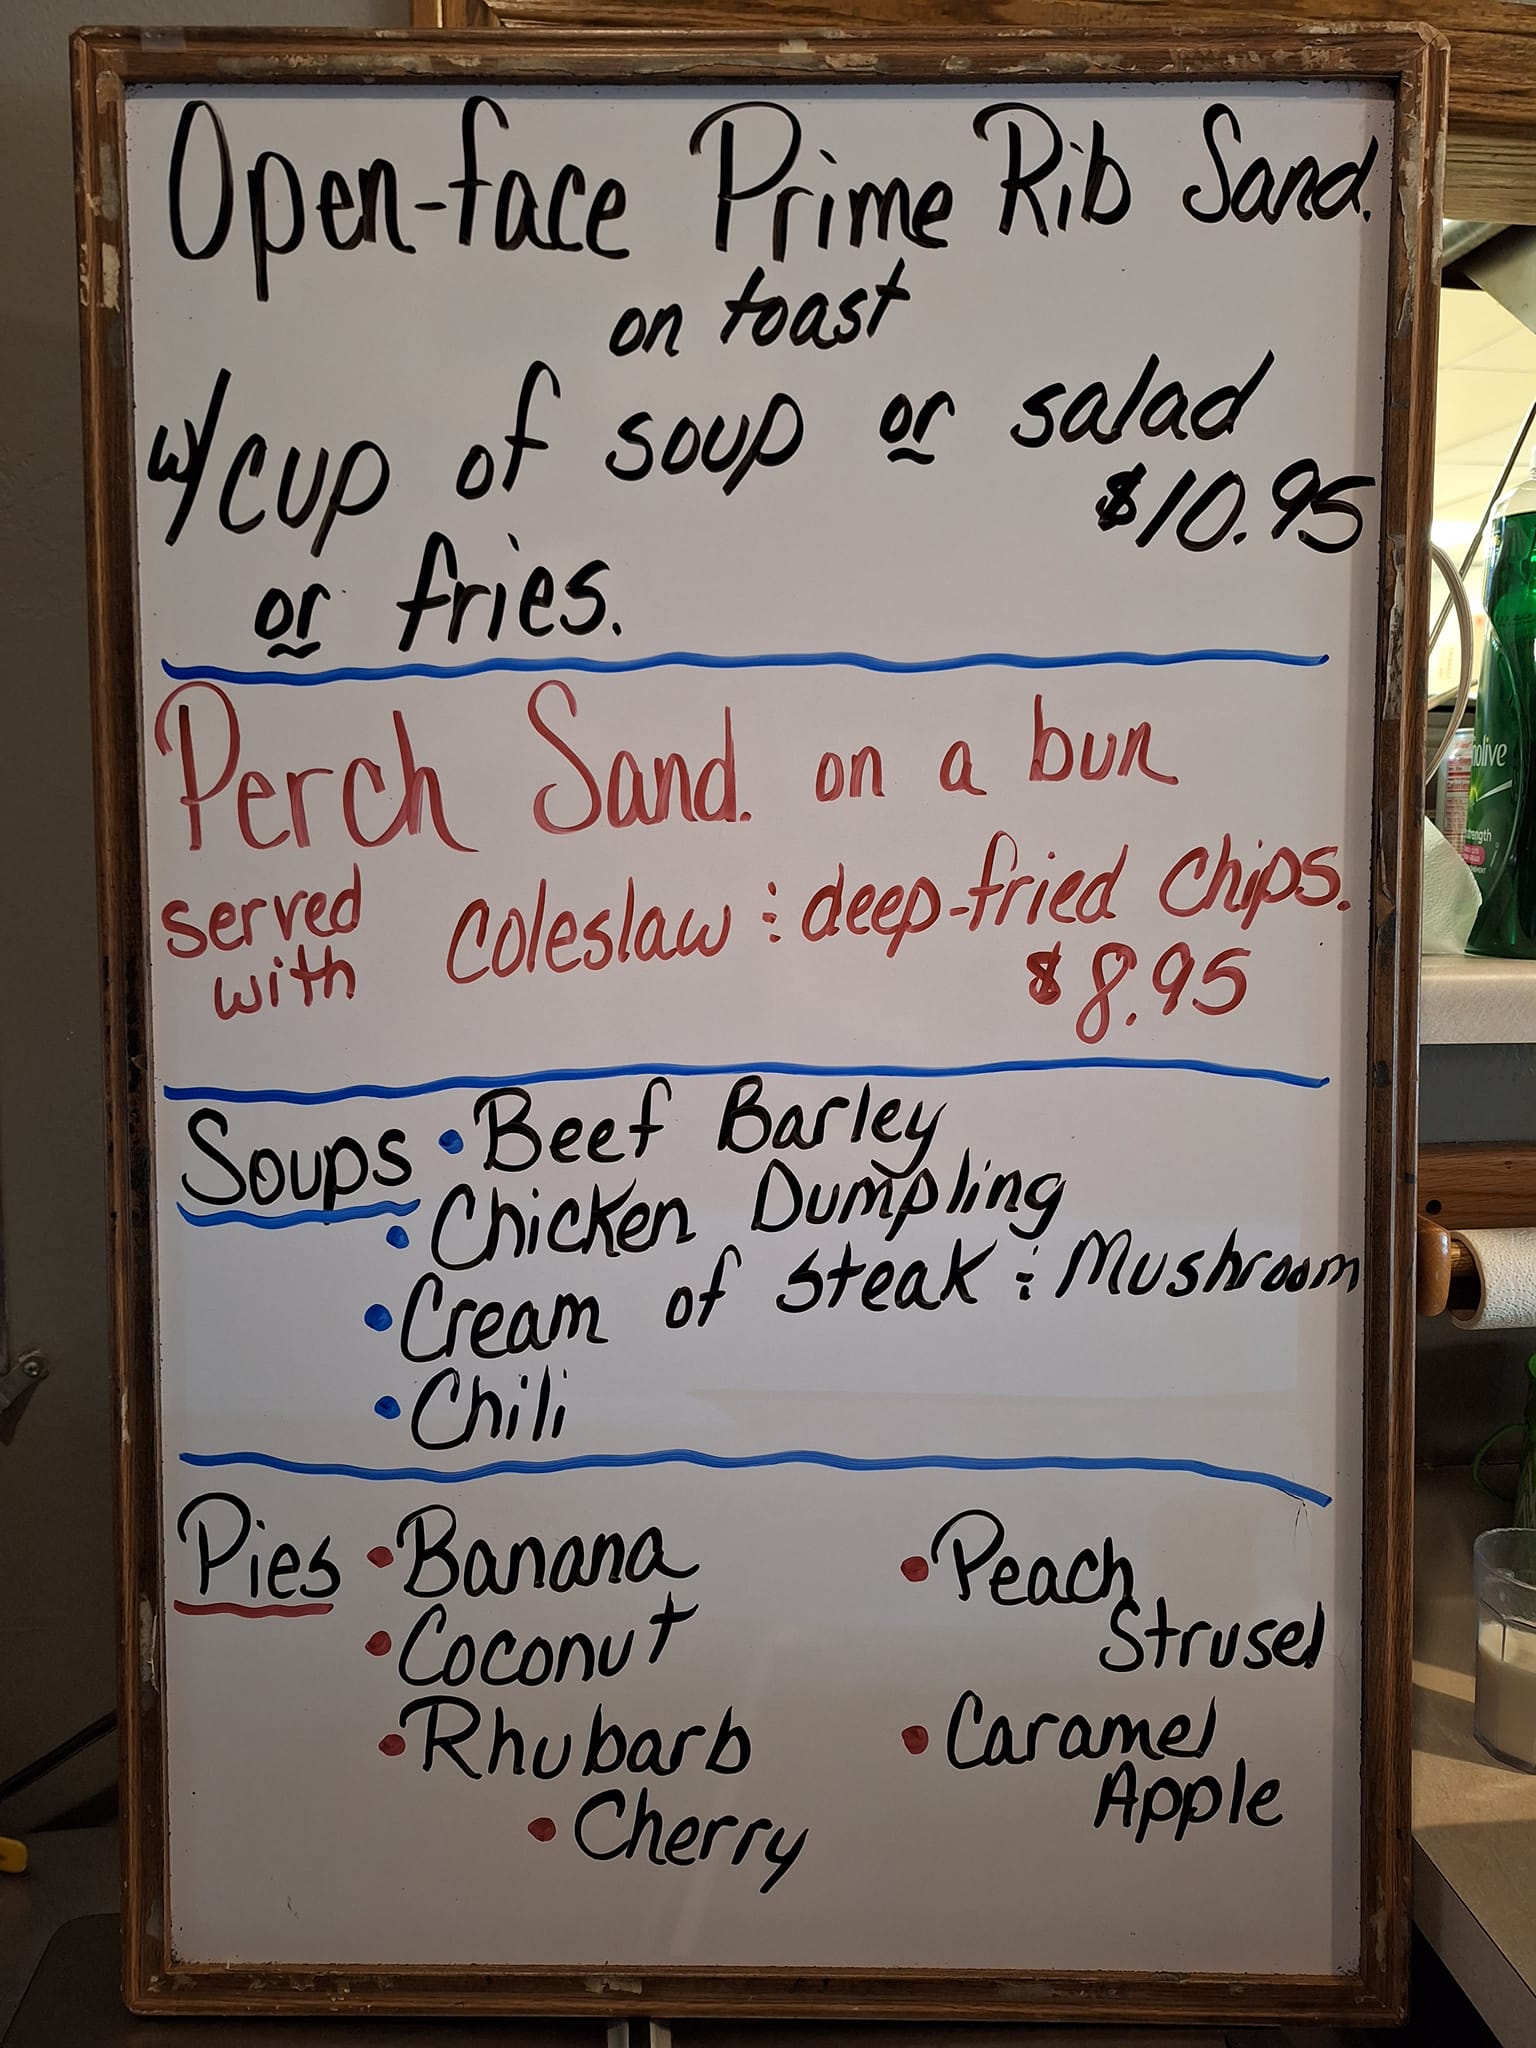 Open-face Prime Rib Sand.
on toast
w/cup of soup or salad
$10.95
or fries.
Perch Sand. on a bun
served with coleslaw & deep-fried chips.
$8.95
Soups • Beef Barley
• Chicken Dumpling
• Cream of Steak & Mushroom
• Chili
Pies • Banana • Peach Strusel
• Coconut
• Rhubarb • Caramel Apple
• Cherry
olive
strength